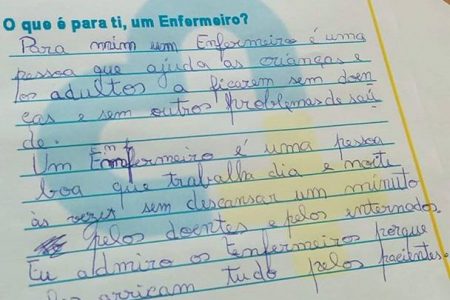 O que é para ti, um Enfermeiro?
Para mim um Enfermeiro é uma
pessoa que ajuda as crianças e
os adultos a ficarem sem doen
ças e sem outros problemas de saú
de.
Um Enfermeiro é uma pessoa
boa que trabalha dia e noite
às vezes sem descansar um minuto
pelos doentes e pelos internados.
Eu admiro os Enfermeiros porque
eles arriscam tudo pelos pacientes.